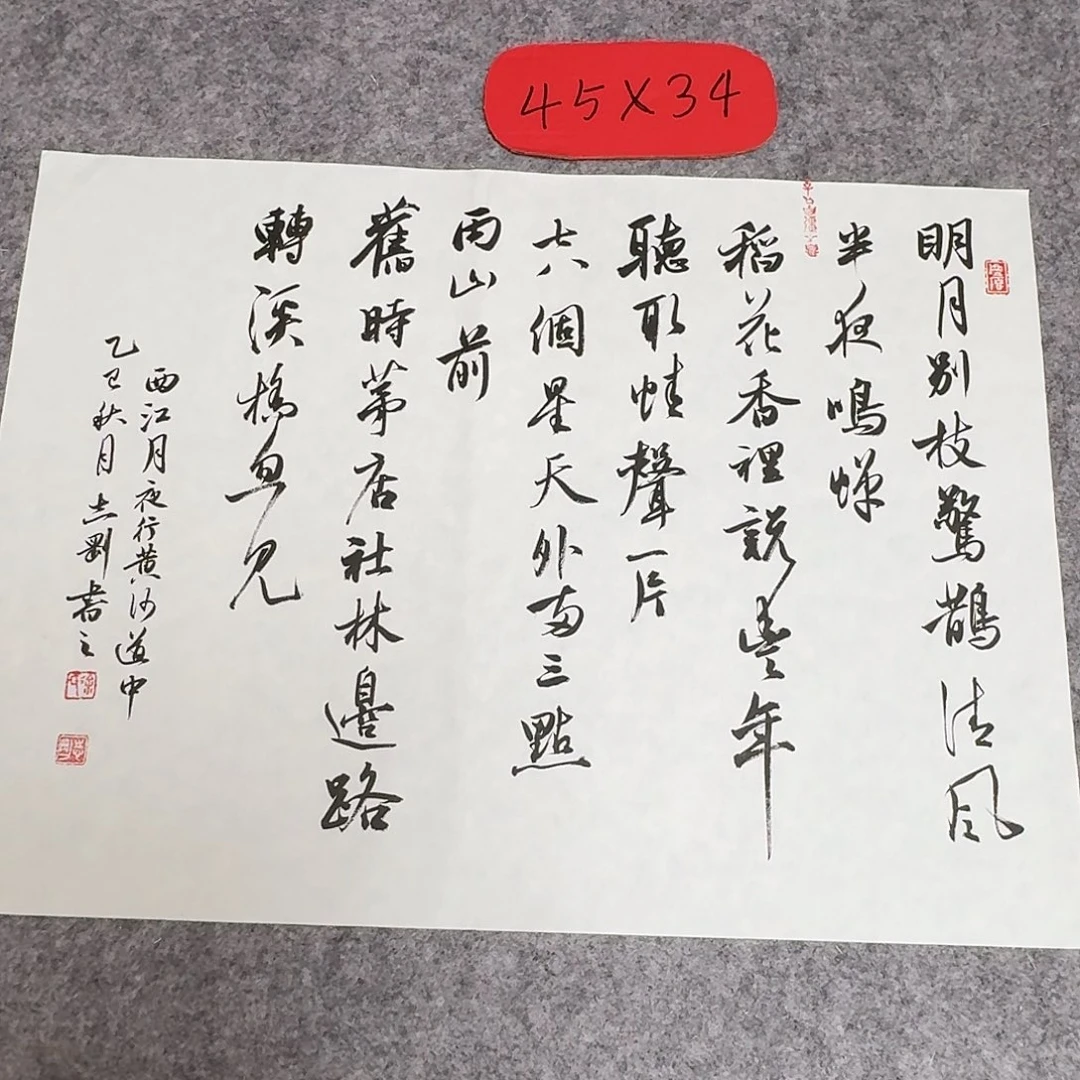 45X34
明月别枝驚鵲清風
半夜鳴蟬
稻花香裡說豊年
聽取蛙聲一片
七八個星天外两三點
雨山前
舊時茅店社林邊路
轉溪橋忽見
西江月夜行黄沙道中
乙巳秋月志剛書之